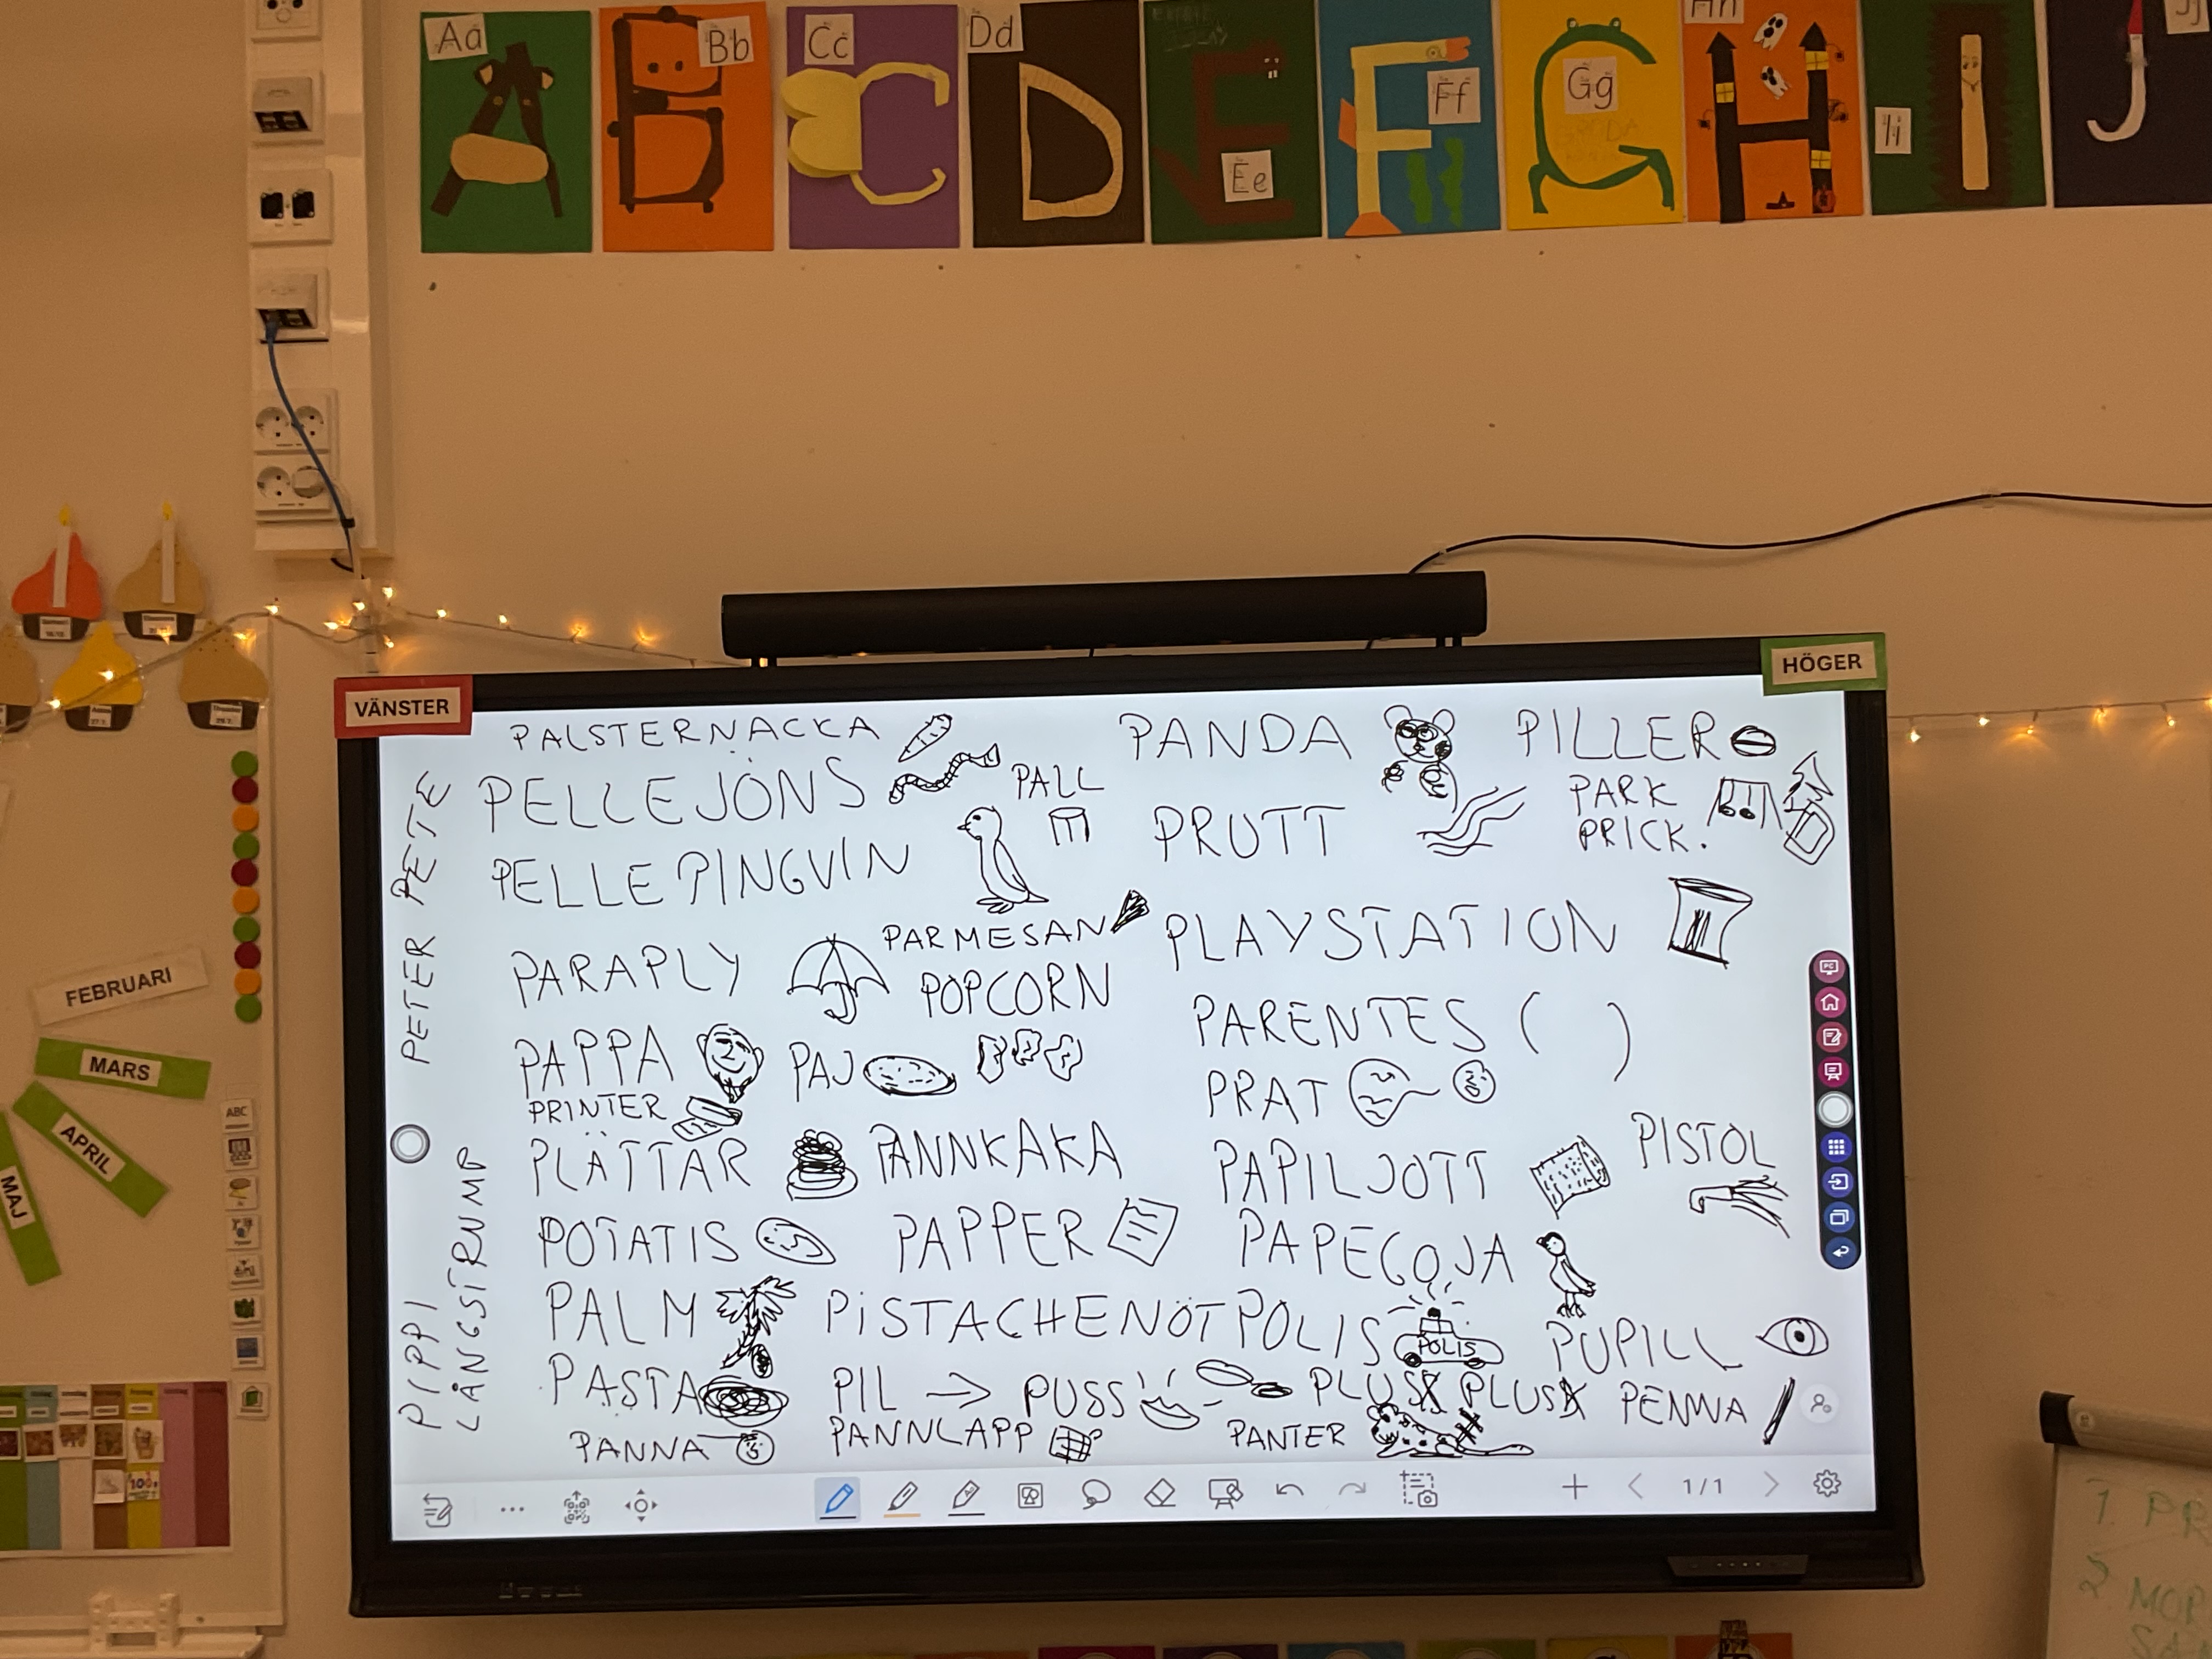 Aa
Bb
Cc
Dd
Ee
Ff
Gg
Hh
Ii
Jj
VÄNSTER
HÖGER
PALSTERNACKA
PANDA
PILLER
PELLEJÖNS
PALL
PRUTT
PARK
PRICK.
PELLE PINGVIN
PARAPLY
PARMESAN
POPCORN
PLAYSTATION
PAPPA
PAJ
PARENTES ( )
PRINTER
PRAT
PLÄTTAR
PANNKAKA
PAPILJOTT
PISTOL
POTATIS
PAPPER
PAPEGOJA
PALM
PISTACHENÖT
POLIS
POLIS
PUPILL
PASTA
PIL →
PUSS
PLUS
PLUS
PENNA
PANNA
PANNLAPP
PANTER
PETER PETE
PIPPI
LÅNGSTRUMP
1/1
PC
FEBRUARI
MARS
APRIL
MAJ
ABC
1. PR
2. MOR
SAN